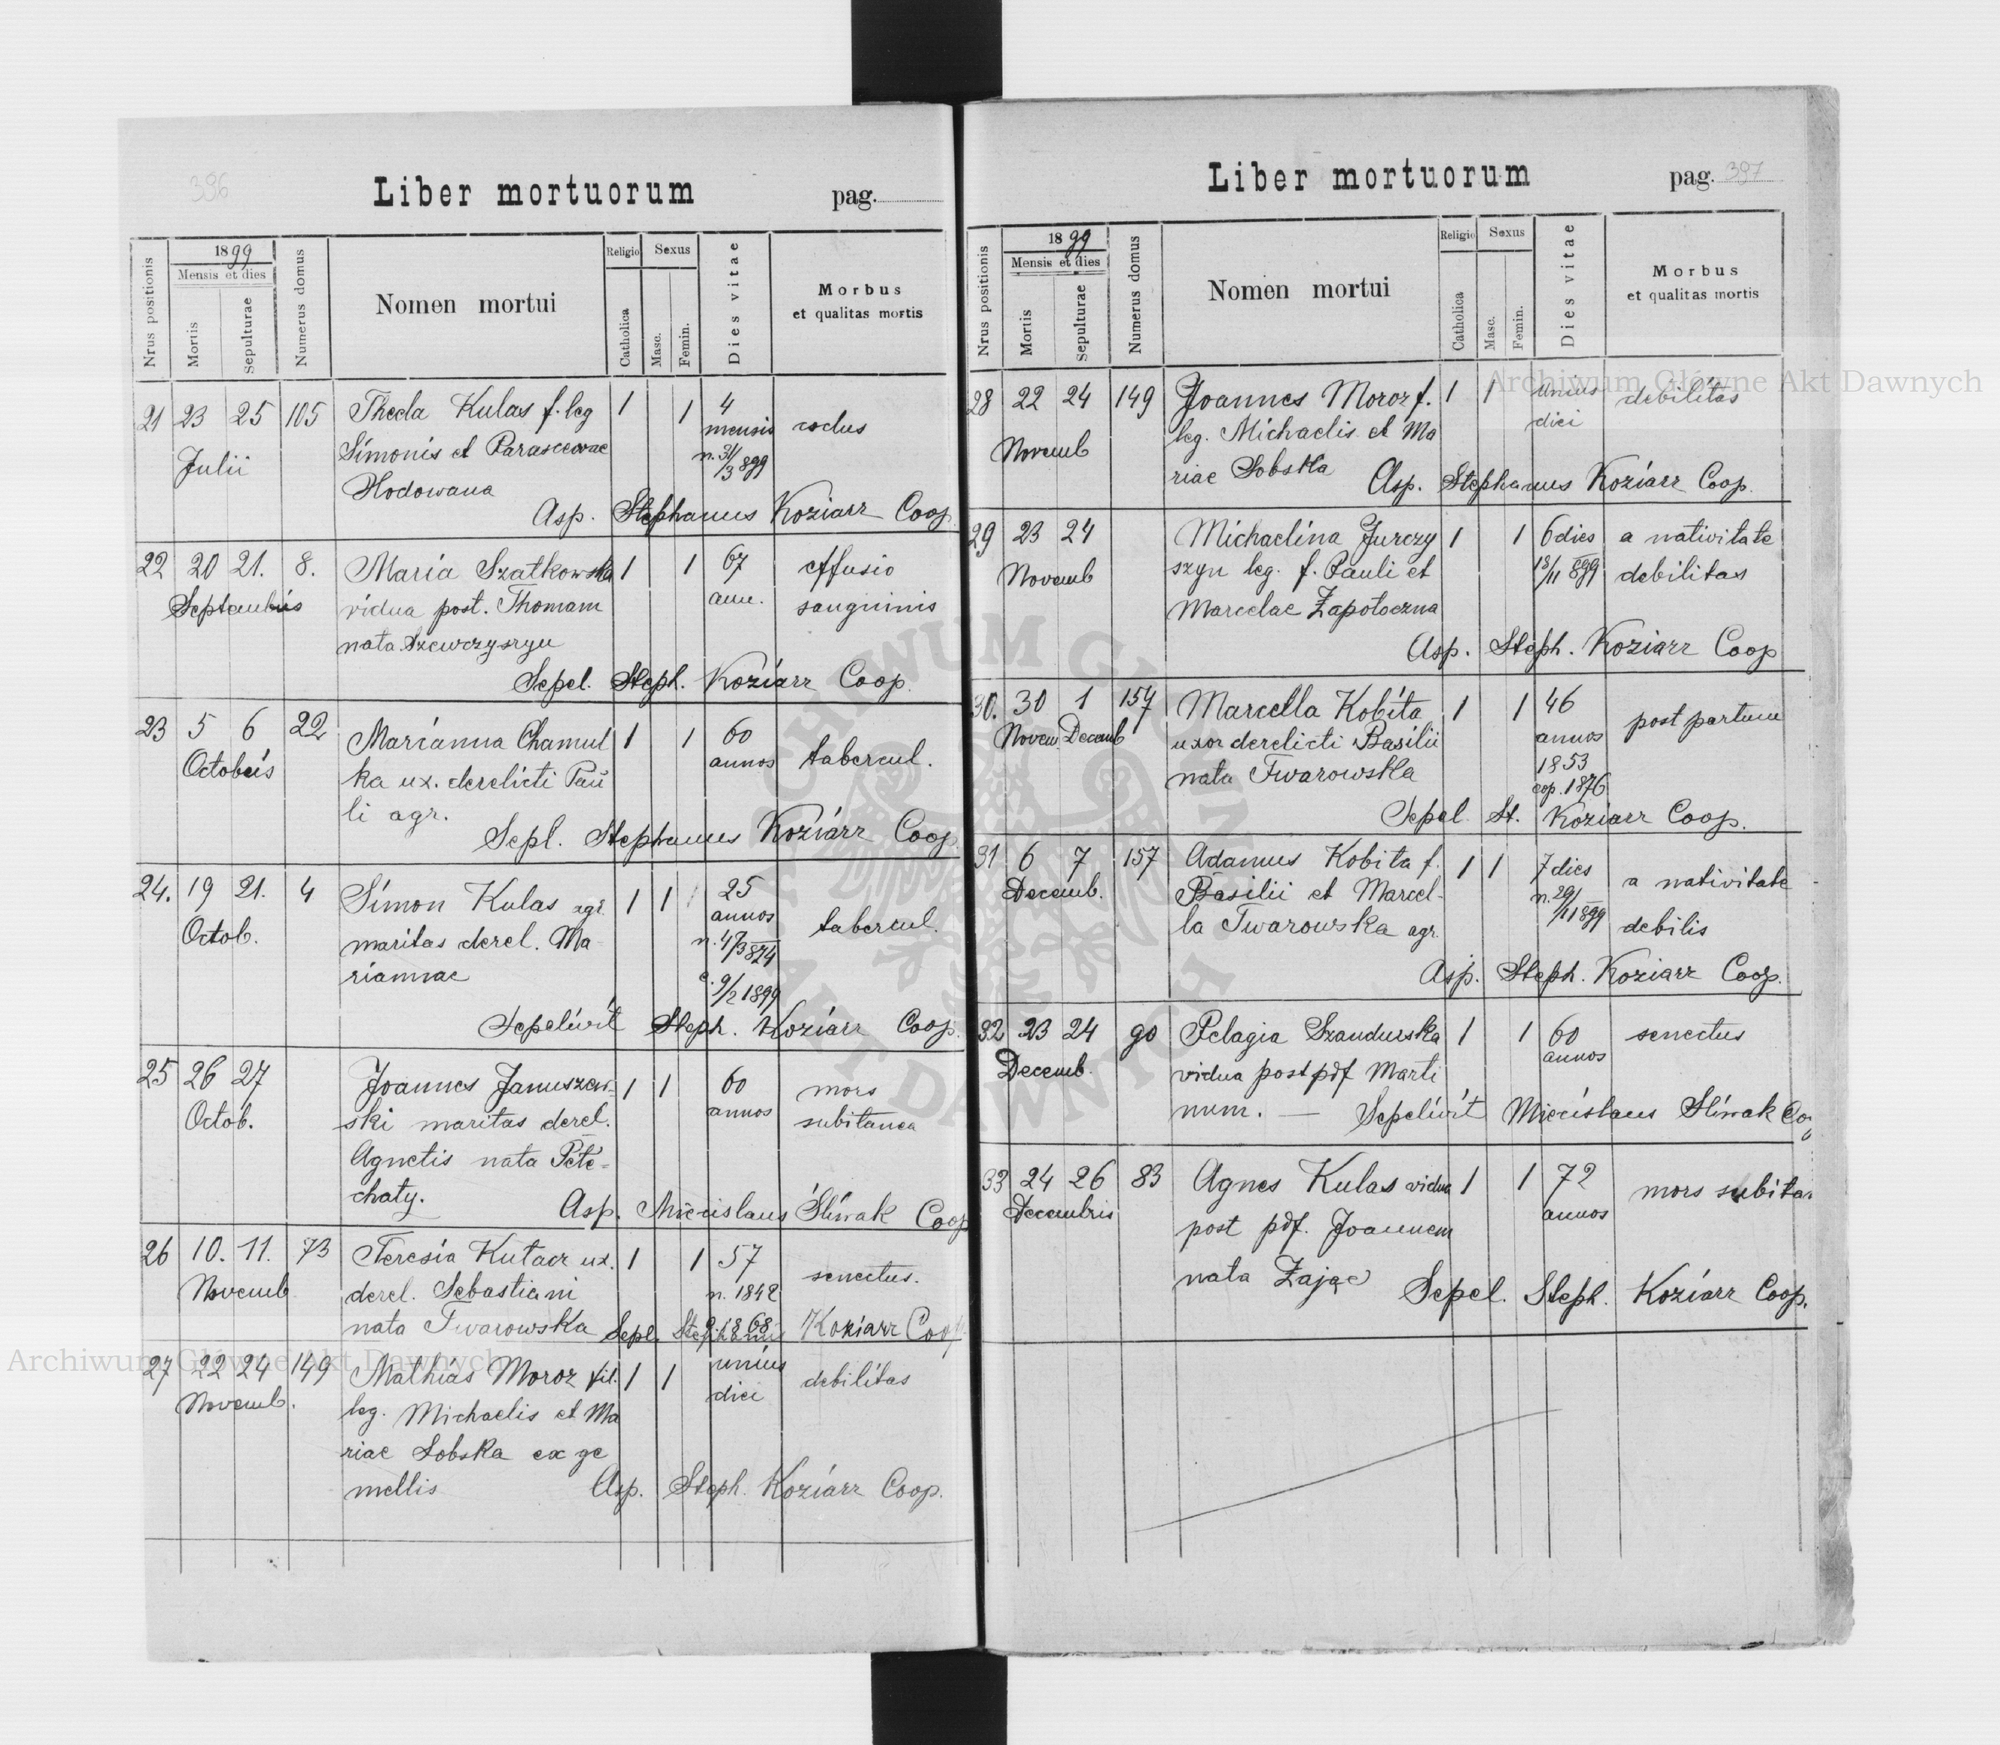 396
Liber mortuorum
pag.
Nrus positionis
1899
Mensis et dies
Mortis
Sepulturae
Numerus domus
Nomen mortui
Religio
Catholica
Sexus
Masc.
Femin.
Dies vitae
Morbus
et qualitas mortis
21 23 25 105 Thecla Kulas f. leg 1 1 4
Julii Simonis et Parascevae mensis
Hodowana n. 31/3 899
Asp. Stephanus Koziarz Coop.
22 20 21. 8. Maria Szatkowska 1 1 67 effusio
Septembris vidua post. Thomam ann. sanguinis
nata Szewczyszyn
Sepel. Steph. Koziarz Coop.
23 5 6 22 Marianna Chamul 1 1 60 tabercul.
Octobris ka ux. derelicti Pau annos
li agr.
Sepl. Stephanus Koziarz Coop
24. 19 21. 4 Simon Kulas agr. 1 1 25 tabercul.
Octob. maritas derel. Ma annos
riannae n. 4/3 874
c. 9/2 1899
Sepelivit Steph. Koziarz Coop.
25 26 27 Joannes Januszew- 1 1 60 mors
Octob. ski maritas derel. annos subitanea
Agnetis nata Pete-
chaty.
Asp. Miecislaus Śliwak Coop
26 10. 11. 73 Teresia Kutacz ux. 1 1 57 senectus.
Novemb derel. Sebastiani n. 1842
nata Twarowska c. 1868
Sepl. Stephanus Koziarz Coop
27 22 24 149 Mathias Moroz fil. 1 1 unius debilitas
Novemb. leg. Michaelis et Ma diei
riae Sobska ex ge
mellis
Asp. Steph. Koziarz Coop.
Liber mortuorum
pag. 397
Nrus positionis
1899
Mensis et dies
Mortis
Sepulturae
Numerus domus
Nomen mortui
Religio
Catholica
Sexus
Masc.
Femin.
Dies vitae
Morbus
et qualitas mortis
28 22 24 149 Joannes Moroz f. 1 1 unius debilitas
Novemb leg. Michaelis et Ma diei
riae Sobska
Asp. Stephanus Koziarz Coop.
29 23 24 Michaelina Jurczy 1 1 6 dies a nativitate
Novemb szyn leg. f. Pauli et 18/11 899 debilitas
Marcelae Zapotoczna
Asp. Steph. Koziarz Coop
30. 30 1 157 Marcella Kobita 1 1 46 post partum
Novem. Decemb uxor derelicti Basilii annos
nata Twarowska 1853
cop. 1876
Sepel St. Koziarz Coop.
31 6 7 157 Adamus Kobita f. 1 1 7 dies a nativitate
Decemb. Basilii et Marcel- n. 29/11 899 debilis
la Twarowska agr.
Asp. Steph. Koziarz Coop.
32 23 24 90 Pelagia Szandurska 1 1 60 senectus
Decemb. vidua post pdf Marti annos
num. — Sepelivit Miecislaus Śliwak Co
33 24 26 83 Agnes Kulas vidua 1 1 72 mors subitan
Decembris post pdf. Joannem annos
nata Zając
Sepel. Steph. Koziarz Coop.
Archiwum Główne Akt Dawnych
Archiwum Główne Akt Dawnych